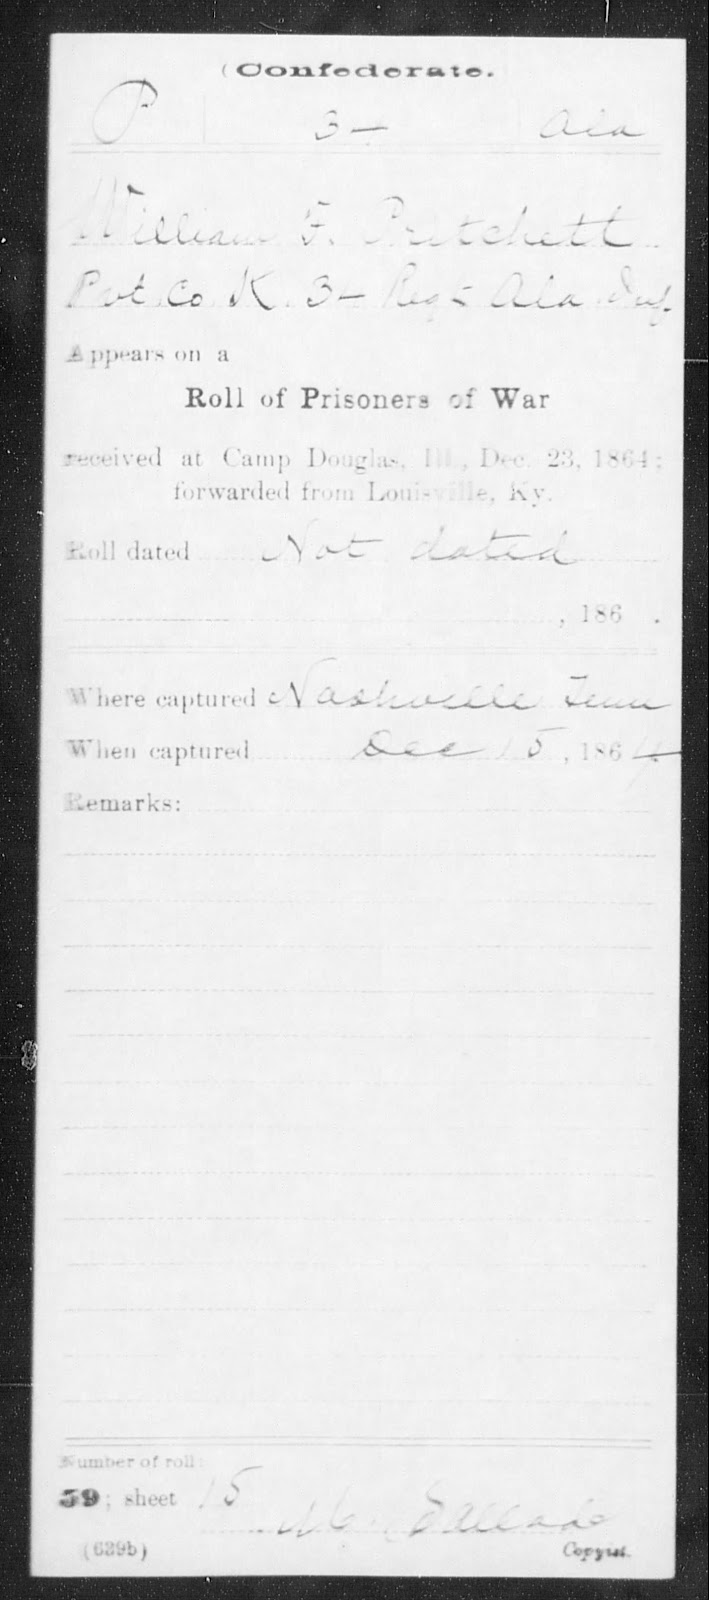 (Confederate.
P 3 — Ala
William F. Pritchett
Pvt. Co K. 3 — Reg't Ala Inf.
Appears on a
Roll of Prisoners of War
received at Camp Douglas, Ill., Dec. 23, 1864;
forwarded from Louisville, Ky.
Roll dated Not dated
, 186 .
Where captured Nashville Tenn
When captured Dec 15, 1864
Remarks:
Number of roll:
59; sheet 15
M.
(639b) Copyist.